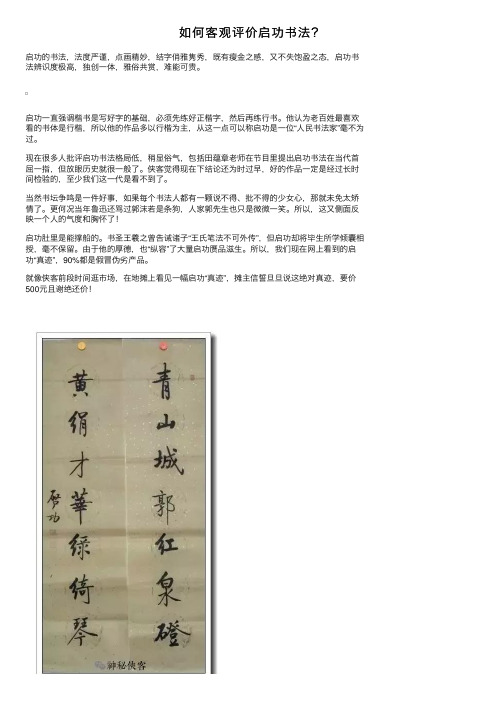 如何客观评价启功书法？
启功的书法，法度严谨，点画精妙，结字俏雅隽秀，既有瘦金之感，又不失饱盈之态，启功书
法辨识度极高，独创一体，雅俗共赏，难能可贵。
启功一直强调楷书是写好字的基础，必须先练好正楷字，然后再练行书。他认为老百姓最喜欢
看的书体是行楷，所以他的作品多以行楷为主，从这一点可以称启功是一位“人民书法家”毫不为
过。
现在很多人批评启功书法格局低，稍显俗气，包括田蕴章老师在节目里提出启功书法在当代首
屈一指，但放眼历史就很一般了。侠客觉得现在下结论还为时过早，好的作品一定是经过长时
间检验的，至少我们这一代是看不到了。
当然书坛争鸣是一件好事，如果每个书法人都有一颗说不得、批不得的少女心，那就未免太矫
情了。更何况当年鲁迅还骂过郭沫若是杀狗，人家郭先生也只是微微一笑。所以，这又侧面反
映一个人的气度和胸怀了！
启功肚里是能撑船的。书圣王羲之曾告诫诸子“王氏笔法不可外传”，但启功却将毕生所学倾囊相
授，毫不保留。由于他的厚德，也“纵容”了大量启功赝品滋生。所以，我们现在网上看到的启
功“真迹”，90%都是假冒伪劣产品。
就像侠客前段时间逛市场，在地摊上看见一幅启功“真迹”，摊主信誓旦旦说这绝对真迹，要价
500元且谢绝还价！
青山城郭红泉磴
黄绢才华绿绮琴
启功
神秘侠客